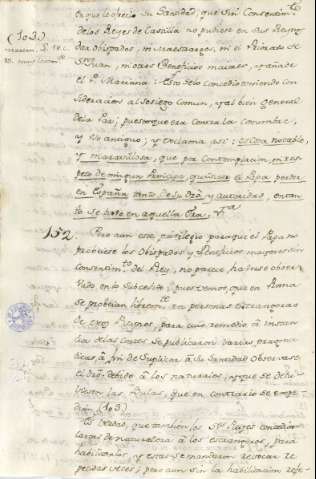 en que le ofreció Su Santidad, que sin Consentim.to
de los Reyes de Castilla no pudiese en sus Reynos
dar Obispados, ni Maestrazgos, ni el Priorato de
S.n Juan, ni otros Beneficios maiores, y añade
el P.e Mariana: esto se lo concedio teniendo con
sideracion al sosiego Comun, y al bien General
de la Paz, puesto que era contra la Costumbre,
y Uso antiguo; y exclama asi: es cosa notable,
y maravillosa, que por Contemplacion, ni res
peto de ningun Principe, quisiese el Papa perder
en España tanto de su Dro. y autoridad, en tan
to se tuvo en aquella Era,
152. Pero aun este privilegio para que el Papa no
proveiese los Obispados, y Beneficios maiores sin
Consentim.to del Rey, no parece haverse obser
vado en lo Subcesivo; pues vemos, que en Roma
se proveian en personas extrangeras
de estos Reynos, para cuio remedio á instan
cia de las Cortes se publicaron varias pragma
ticas, á fin de Suplicar á Su Santidad observase
el dro. debido á los naturales; y que se detu
viesen las Bulas, que en contrario se
(103)
Es verdad, que tambien los S.res Reyes concedian
cartas de naturaleza á los extrangeros, para
habilitarlos, y estas se mandaron revocar re
petidas veces; pero aun sin la habilitacion
(103)